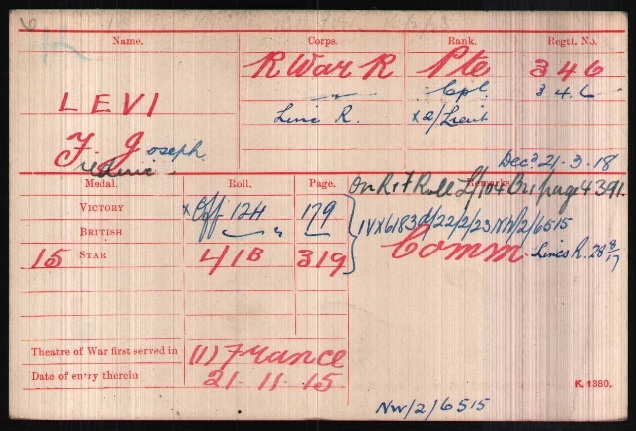 Name. Corps. Rank. Regtl. No.
LEVI R War R Pte 346
Cpl. 346
F. J oseph Linc R. x2/Lieut
rederic
Decd 21-3-18
Medal. Roll. Page. Remarks.
On R+F Roll L/104 B11 page 4391.
VICTORY x Off 124 179
BRITISH " IVX6183d/22/2/23 NW/2/6515
15 STAR 4/1B 319 Comm. Lincs R. 28 8/17
Theatre of War first served in (1) France
Date of entry therein 21. 11. 15 K. 1380.
NW/2/6515